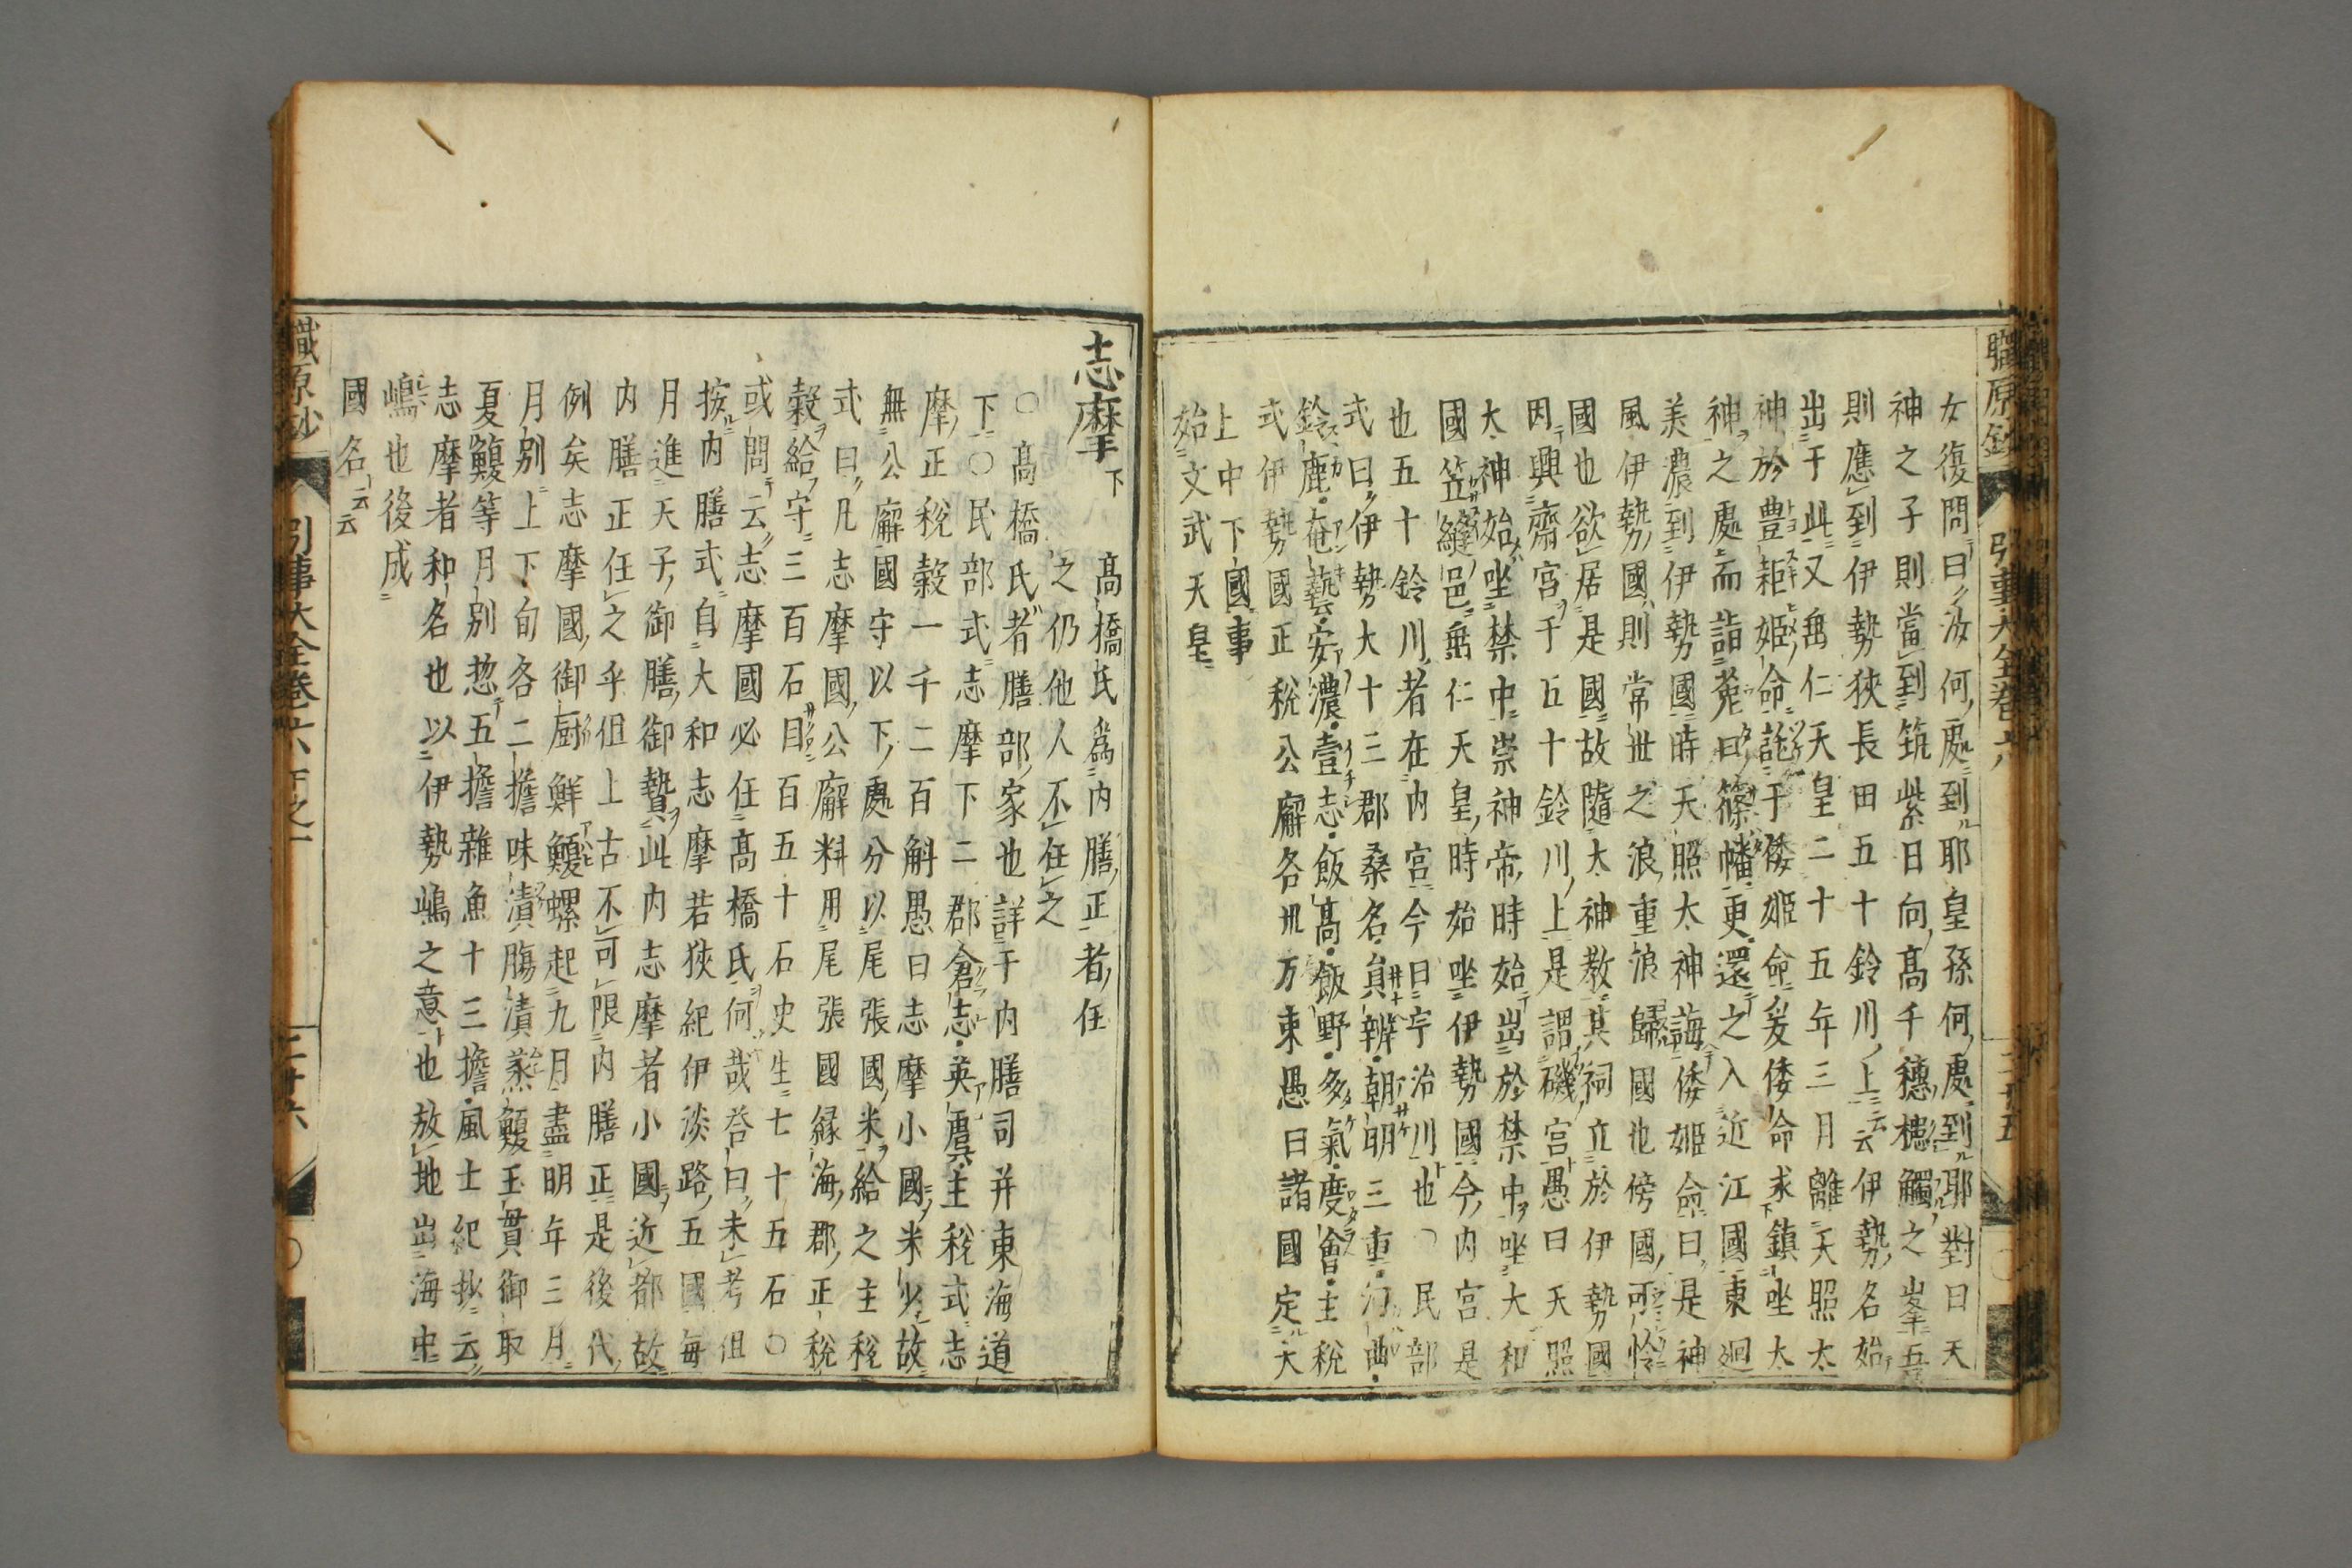 職原鈔 引事大全卷六
女復問曰汝何處到耶皇孫何處到耶對曰天
神之子則當到筑紫日向高千穗槵觸之峯吾
則應到伊勢狹長田五十鈴川上云云伊勢名始
出于此又垂仁天皇二十五年三月離天照太
神於豊耜姬命託于倭姬命爰倭命求鎮坐大
神之處而詣菟田篠幡更還之入近江國東廻
美濃到伊勢國時天照太神誨倭姬命曰是神
風伊勢國則常世之浪重浪歸國也傍國可怜
國也欲居是國故隨太神教其祠立於伊勢國
因興齋宮于五十鈴川上是謂磯宮愚曰天照
大神始坐禁中崇神帝時始出於禁中坐大和
國笠縫邑垂仁天皇時始坐伊勢國今内宮是
也五十鈴川者在内宮今曰宇治川也○民部
式曰伊勢大十三郡桑名員辨朝明三重河曲
鈴鹿奄藝安濃壹志飯高飯野多氣度會主税
式伊勢國正税公廨各卅万束愚曰諸國定大
上中下國事
始文武天皇
志摩下 高橋氏爲内膳正者任
之仍他人不任之
○高橋氏者膳部家也詳于内膳司并東海道
下○民部式志摩下二郡答志英虞主税式志
摩正税穀一千二百斛愚曰志摩小國米少故
無公廨國守以下處分以尾張國米給之主税
式曰凡志摩國公廨料用尾張國緣海郡正税
穀給守三百石目百五十石史生七十五石○
或問云志摩國必任高橋氏何哉答曰未考但
按内膳式自大和志摩若狹紀伊淡路五國每
月進天子御膳御贄此内志摩者小國近都故
内膳正任之乎但上古不可限内膳正是後代
例矣志摩國御厨鮮鰒螺起九月盡明年三月
月別上下旬各二擔味漬腸漬蒸鰒玉貫御取
夏鰒等月別惣五擔雜魚十三擔風土紀抄云
志摩者和名也以伊勢嶋之意也放地出海中
嶋也後成
國名云云
職原鈔 引事大全卷六下之一 二十六